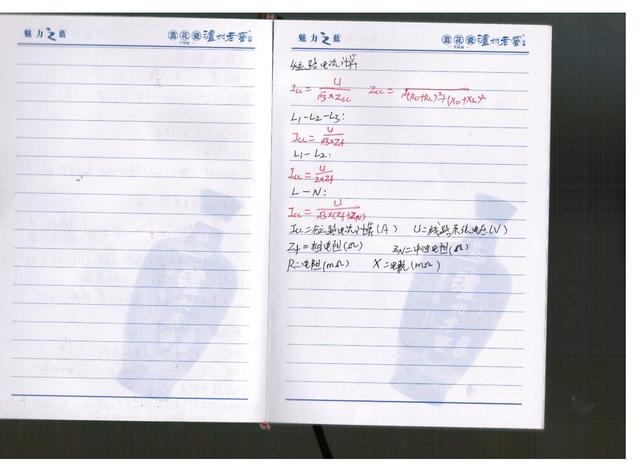 魅力之蓝
青花瓷 泸州老窖
魅力之蓝
青花瓷 泸州老窖
短路电流计算
Icc = U/√3×Zcc Zcc = /√(R0+RL)²+(X0+XL)²
L1-L2-L3:
Icc = U/√3×Zf
L1-L2:
Icc = U/2×Zf
L-N:
Icc = U/√3×(Zf+ZN)
Icc=短路电流计算(A) U=线路系统电压(V)
Zf=相电阻(Ω) ZN=中性电阻(Ω)
R=电阻(mΩ) X=电抗(mΩ)